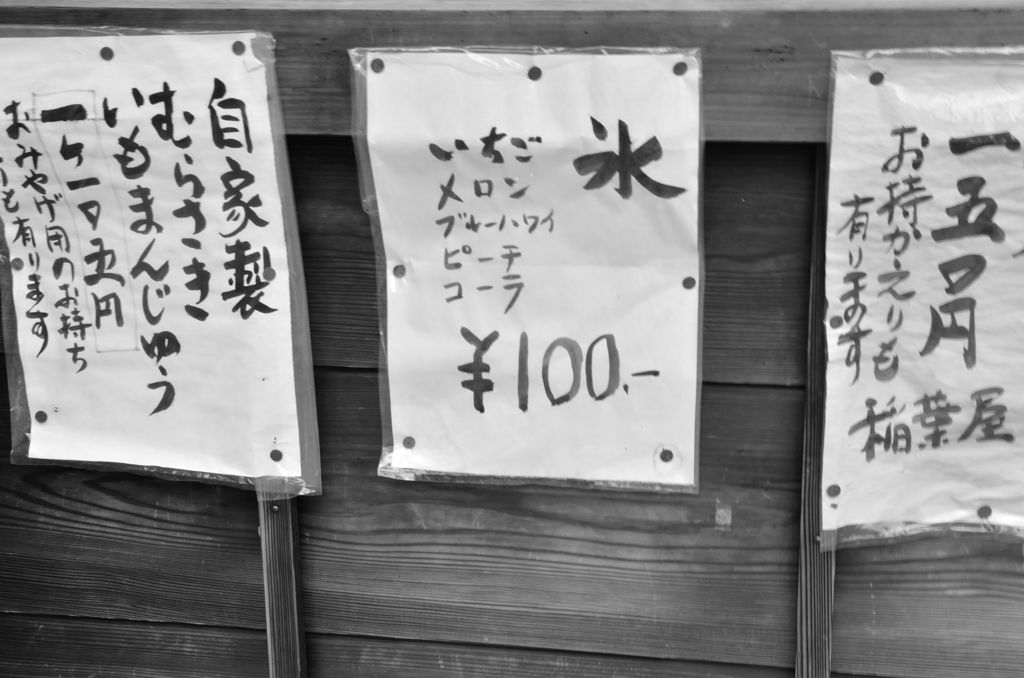 自家製
むらさき
いもまんじゅう
一ケ一夕五円
おみやげ用のお持ち
も有ります
氷
いちご
メロン
ブルーハワイ
ピーチ
コーラ
¥100.-
一五〇円
お持かえりも
有ります
稲葉屋